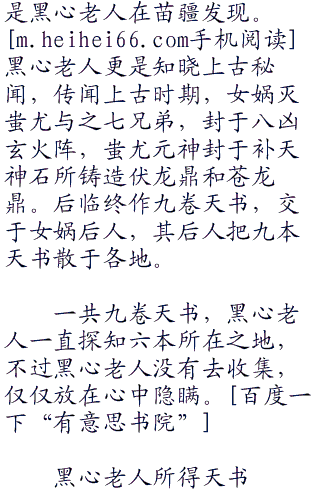 是黑心老人在苗疆发现。
[m.heihei66.com手机阅读]
黑心老人更是知晓上古秘
闻，传闻上古时期，女娲灭
蚩尤与之七兄弟，封于八凶
玄火阵，蚩尤元神封于补天
神石所铸造伏龙鼎和苍龙
鼎。后临终作九卷天书，交
于女娲后人，其后人把九本
天书散于各地。
一共九卷天书，黑心老
人一直探知六本所在之地，
不过黑心老人没有去收集，
仅仅放在心中隐瞒。[百度一
下“有意思书院”]
黑心老人所得天书